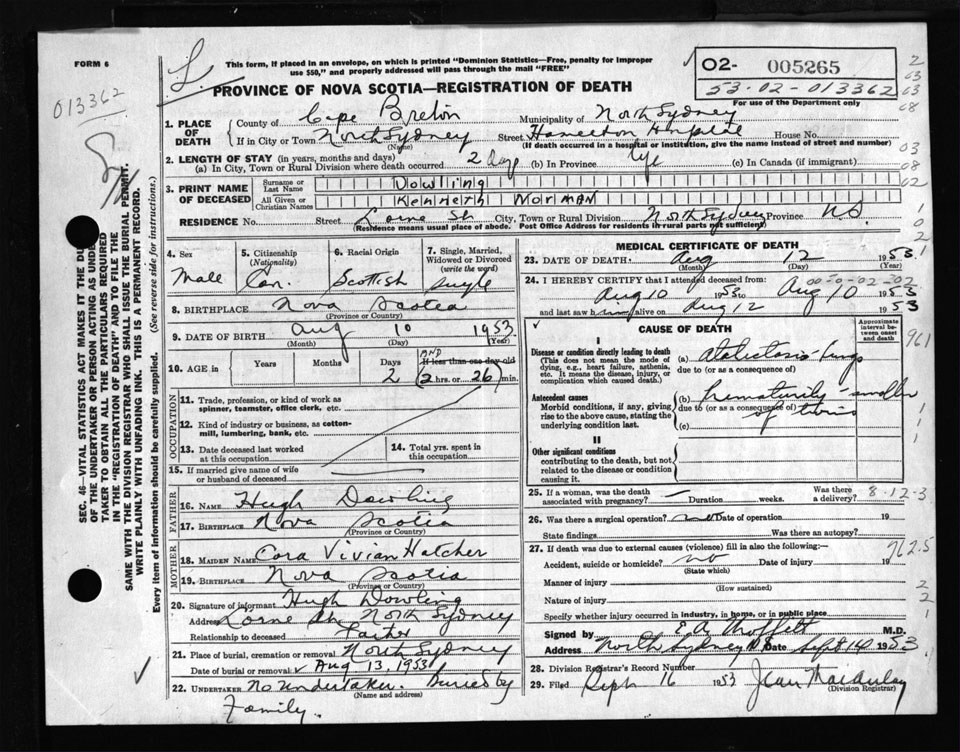 FORM 6
This form, if placed in an envelope, on which is printed "Dominion Statistics—Free, penalty for improper
use $50," and properly addressed will pass through the mail "FREE"
PROVINCE OF NOVA SCOTIA—REGISTRATION OF DEATH
O2- 005265
53-02-013362
For use of the Department only
013362
1. PLACE OF DEATH
County of Cape Breton Municipality of North Sydney
If in City or Town North Sydney Street Hamilton House No.
(Name) (If death occurred in a hospital or institution, give the name instead of street and number)
2. LENGTH OF STAY (in years, months and days)
(a) In City, Town or Rural Division where death occurred 2 days (b) In Province life (c) In Canada (if immigrant)
3. PRINT NAME OF DECEASED
Surname or Last Name Dowling
All Given or Christian Names Kenneth Norman
RESIDENCE No. Street Lorne St. City, Town or Rural Division North Sydney Province NS
(Residence means usual place of abode. Post Office Address for residents in rural parts not sufficient)
4. Sex Male
5. Citizenship (Nationality) Can.
6. Racial Origin Scottish
7. Single, Married, Widowed or Divorced (write the word) Single
8. BIRTHPLACE Nova Scotia
(Province or Country)
9. DATE OF BIRTH Aug 10 1953
(Month) (Day) (Year)
10. AGE in Years Months Days 2 AND If less than one day old 2 hrs. or 26 min.
OCCUPATION
11. Trade, profession, or kind of work as spinner, teamster, office clerk, etc.
12. Kind of industry or business, as cotton-mill, lumbering, bank, etc.
13. Date deceased last worked at this occupation
14. Total yrs. spent in this occupation
15. If married give name of wife or husband of deceased
FATHER
16. NAME Hugh Dowling
17. BIRTHPLACE Nova Scotia
(Province or Country)
MOTHER
18. MAIDEN NAME Cora Vivian Hatcher
19. BIRTHPLACE Nova Scotia
(Province or Country)
20. Signature of informant Hugh Dowling
Address Lorne St. North Sydney
Relationship to deceased Father
21. Place of burial, cremation or removal North Sydney
Date of burial or removal Aug 13, 1953
22. UNDERTAKER No Undertaker. Buried by
(Name and address)
Family.
MEDICAL CERTIFICATE OF DEATH
23. DATE OF DEATH Aug 12 1953
(Month) (Day) (Year)
24. I HEREBY CERTIFY that I attended deceased from:
Aug 10 1953 to Aug 10 1953
and last saw him alive on Aug 12 1953
CAUSE OF DEATH
Approximate interval between onset and death
I
Disease or condition directly leading to death
(This does not mean the mode of dying, e.g., heart failure, asthenia, etc. It means the disease, injury, or complication which caused death.)
(a) lungs
due to (or as a consequence of)
Antecedent causes
Morbid conditions, if any, giving rise to the above cause, stating the underlying condition last.
(b) Prematurity - smaller
due to (or as a consequence of) of twins
(c)
II
Other significant conditions
contributing to the death, but not related to the disease or condition causing it.
961
25. If a woman, was the death associated with pregnancy? — Duration weeks. Was there a delivery?
8-12-3
26. Was there a surgical operation? Date of operation 19
State findings Was there an autopsy?
27. If death was due to external causes (violence) fill in also the following:—
762.5
Accident, suicide or homicide? no Date of injury 19
(State which)
Manner of injury
(How sustained)
Nature of injury
Specify whether injury occurred in industry, in home, or in public place
Signed by E. A. Moffett M.D.
Address North Sydney N.S. Date Sept 14 1953.
28. Division Registrar's Record Number
29. Filed Sept 16 1953 Jean
(Division Registrar)
SEC. 46—VITAL STATISTICS ACT MAKES IT THE DU
OF THE UNDERTAKER OR PERSON ACTING AS UNDE
TAKER TO OBTAIN ALL THE PARTICULARS REQUIRED
IN THE "REGISTRATION OF DEATH" AND TO FILE THE
SAME WITH THE DIVISION REGISTRAR WHO SHALL ISSUE THE BURIAL PERMIT.
WRITE PLAINLY WITH UNFADING INK. THIS IS A PERMANENT RECORD.
Every item of information should be carefully supplied. (See reverse side for instructions.)